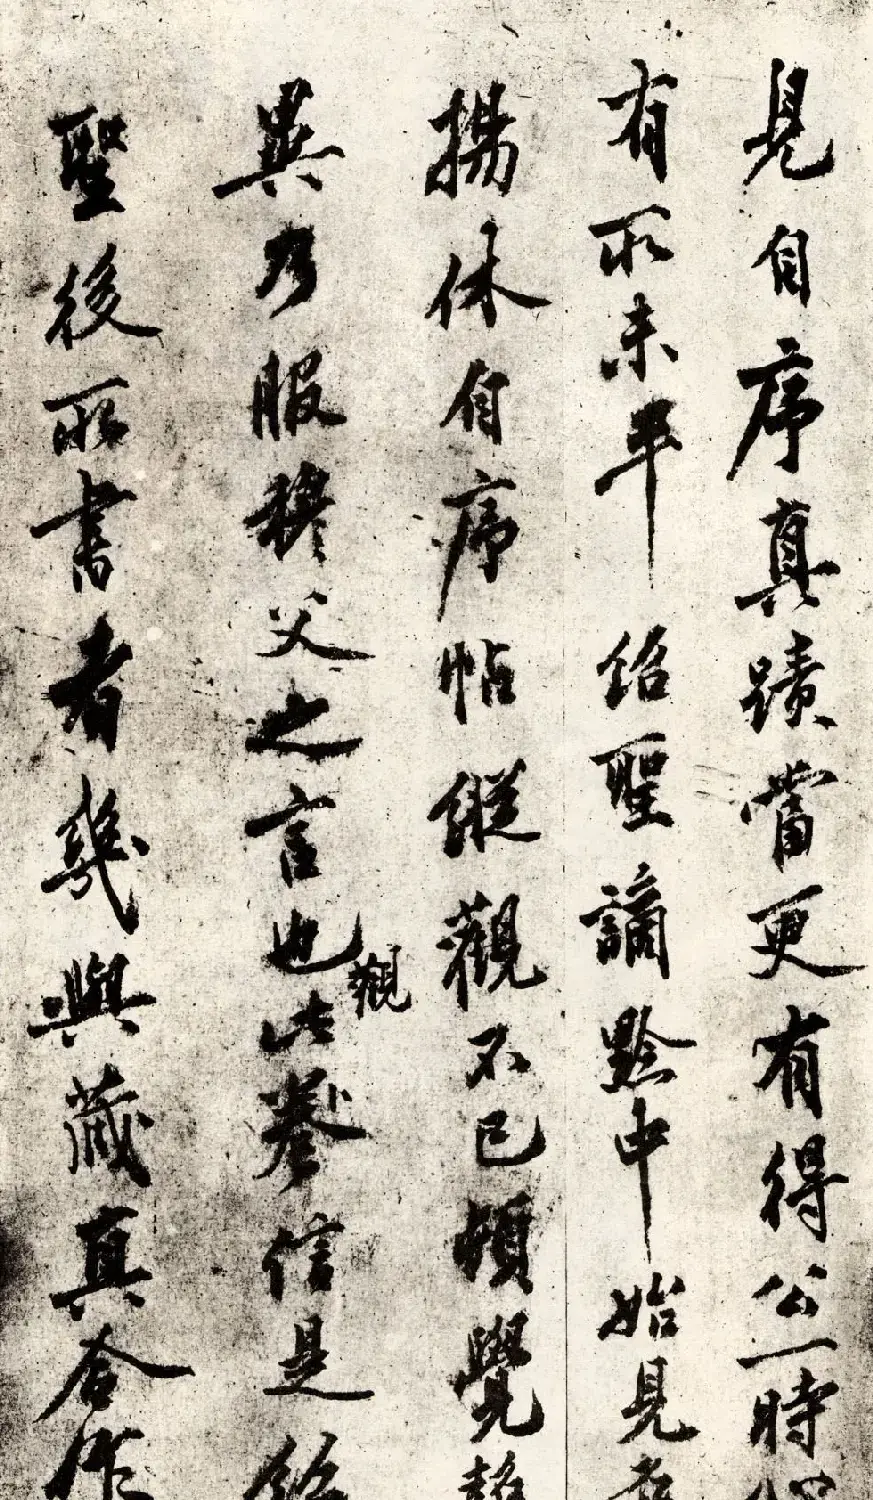 見自序真蹟當更有得公一時
有所未平紹聖謫黔中始見
揚休自序帖縱觀不已頓覺
異乃服穆父之言也觀此卷信是紹
聖後所書者幾與藏真合作